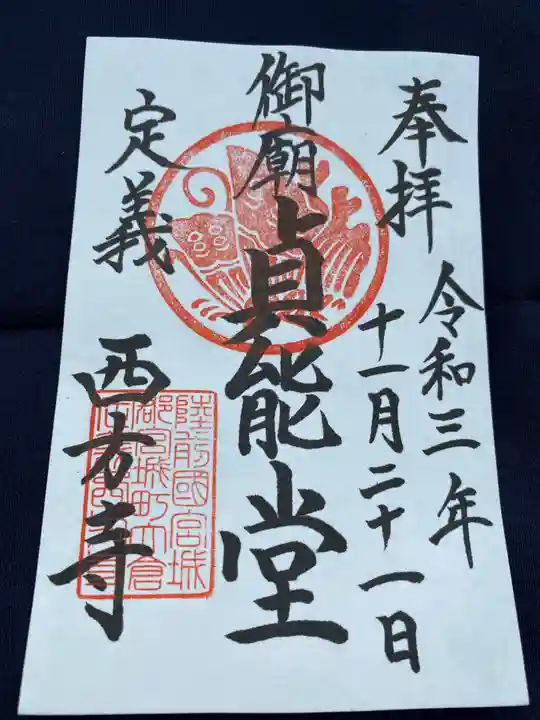 奉拝
令和三年
十一月二十一日
御廟
貞能堂
定義
西方寺
陸前國宮城
郡宮城町大倉